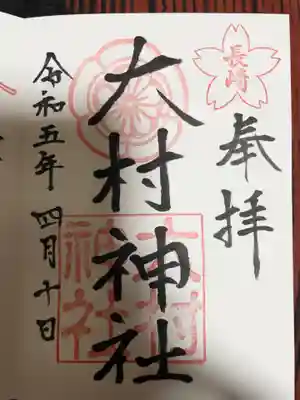 奉拝
長崎
大村神社
大村神社
令和五年 四月十日